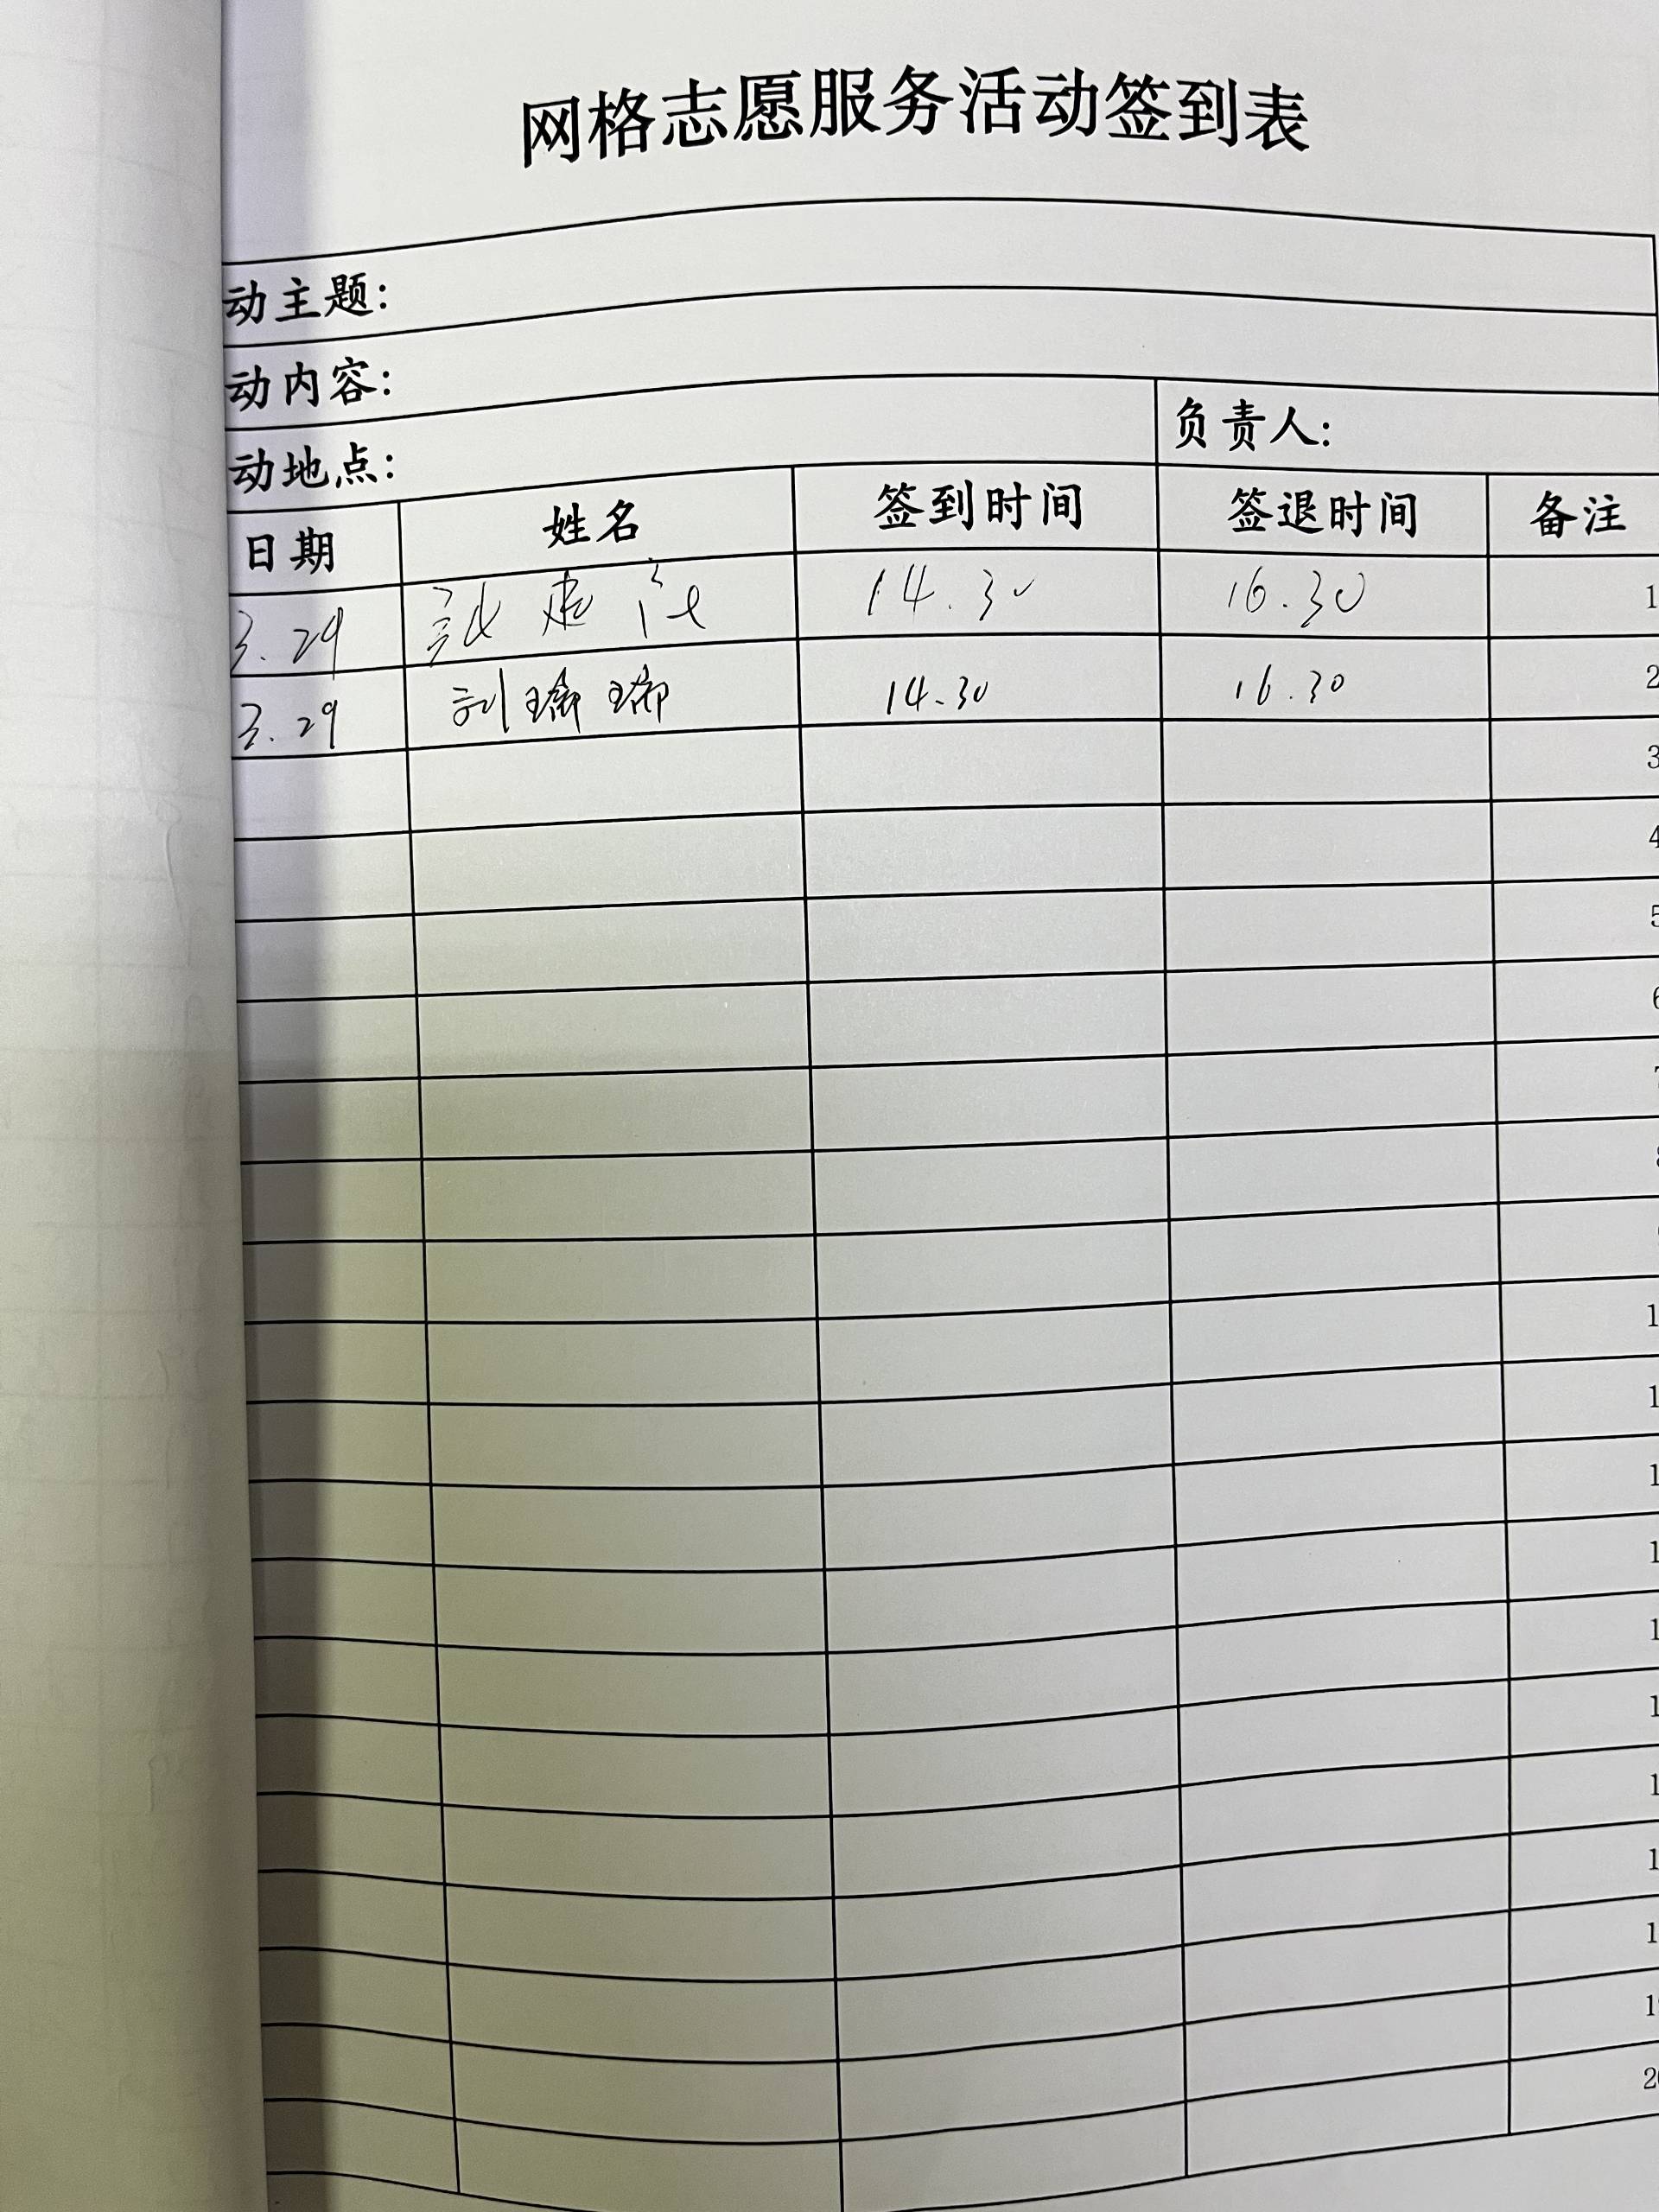 网格志愿服务活动签到表
动主题:
动内容:
动地点: 负责人:
日期 姓名 签到时间 签退时间 备注
3.29 14.30 16.30 1
3.29 刘瑜瑜 14.30 16.30 2
3
4
5
6
7
8
1
1
1
1
1
1
1
1
1
1
20